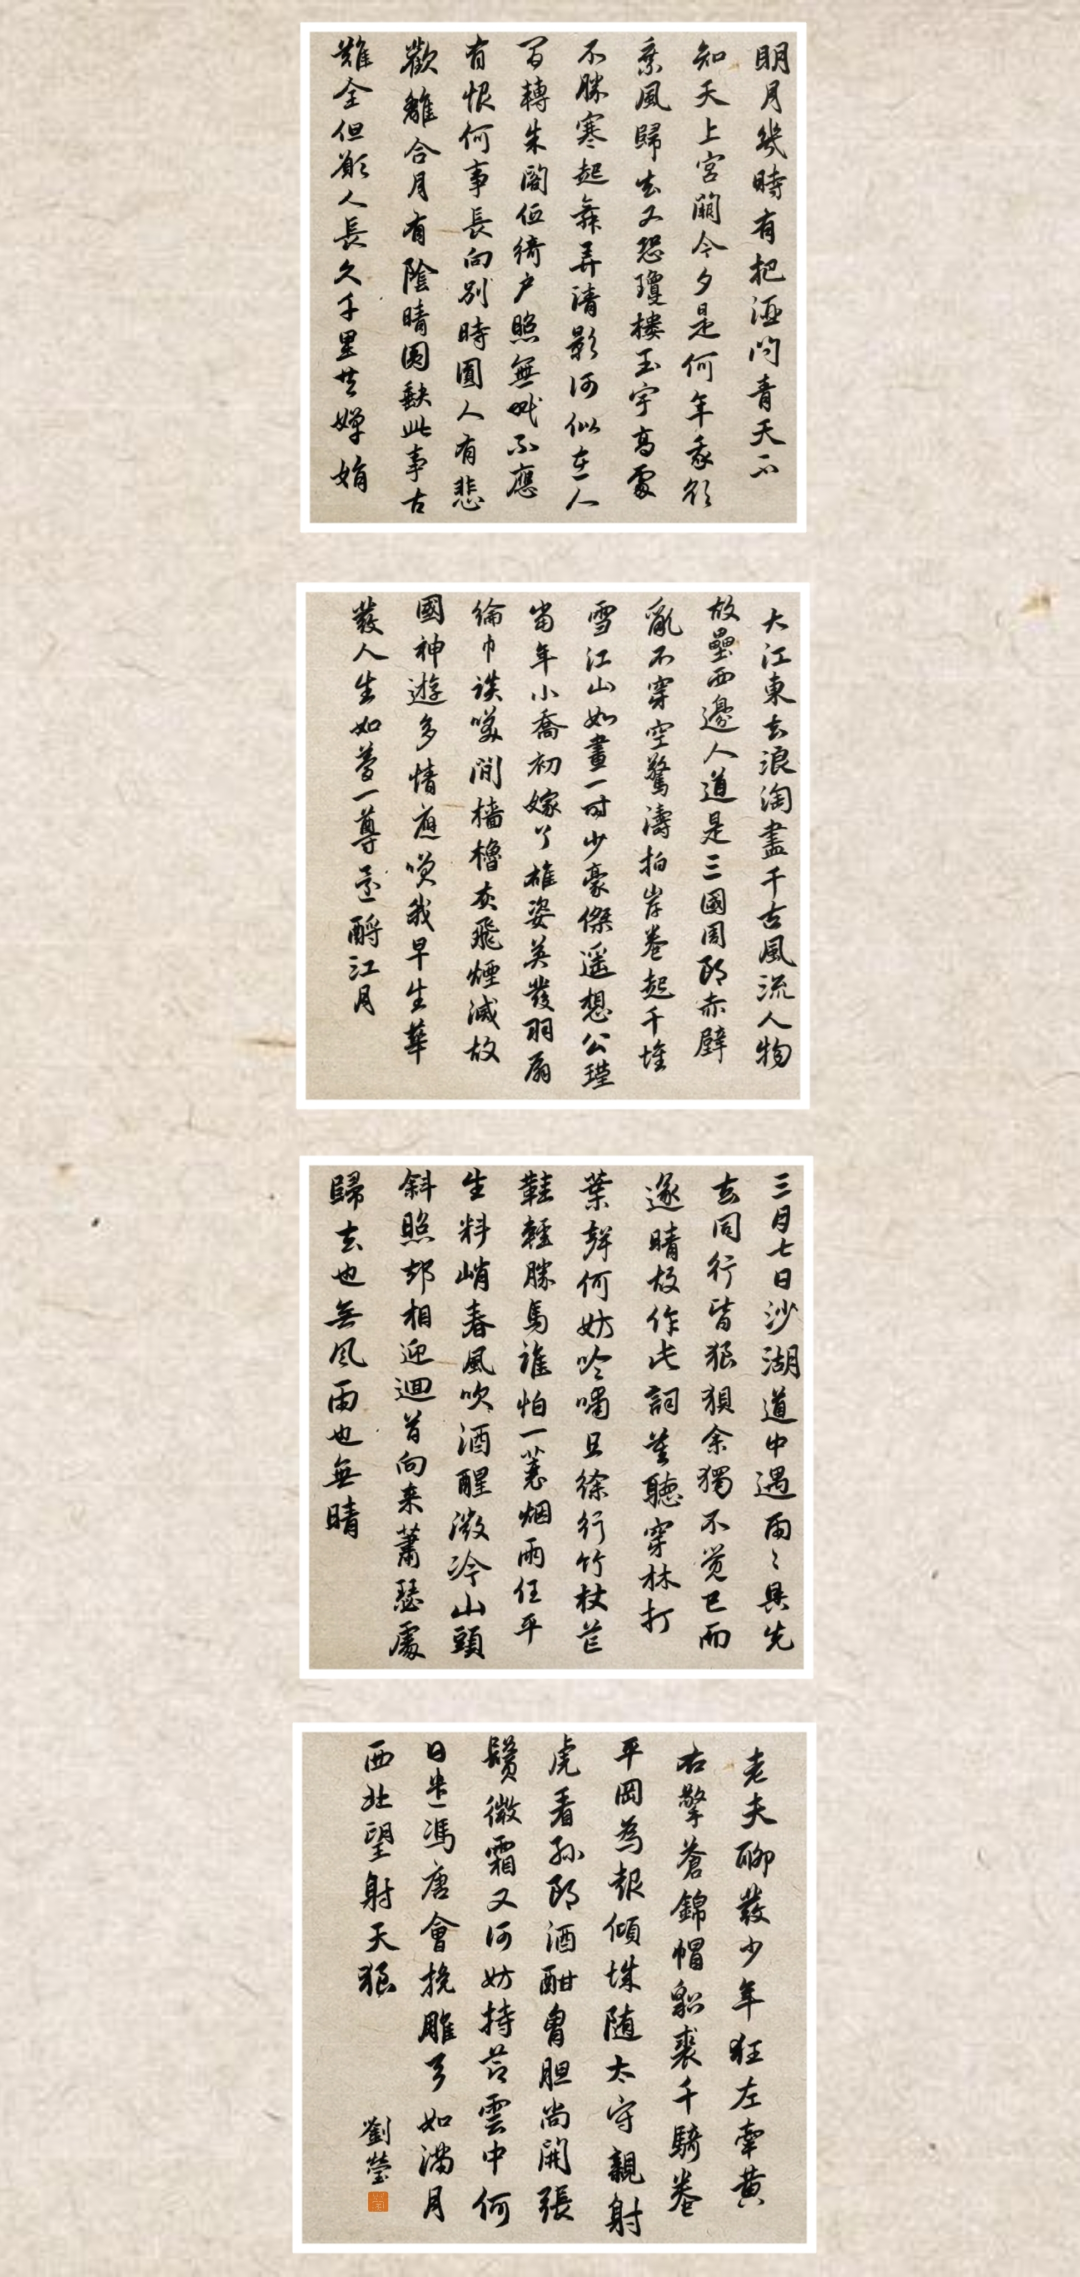 明月幾時有把酒問青天不
知天上宮闕今夕是何年我欲
乘風歸去又恐瓊樓玉宇高處
不勝寒起舞弄清影何似在人
間轉朱閣低綺户照無眠不應
有恨何事長向别時圓人有悲
歡離合月有陰晴圓缺此事古
難全但願人長久千里共嬋娟
大江東去浪淘盡千古風流人物
故壘西邊人道是三國周郎赤壁
亂石穿空驚濤拍岸卷起千堆
雪江山如畫一時少豪傑遥想公瑾
當年小喬初嫁了雄姿英發羽扇
綸巾談笑間檣櫓灰飛煙滅故
國神遊多情應笑我早生華
髮人生如夢一尊還酹江月
三月七日沙湖道中遇雨〻具先
去同行皆狼狽余獨不覺已而
遂晴故作此詞莫聽穿林打
葉聲何妨吟嘯且徐行竹杖芒
鞋輕勝馬誰怕一蓑烟雨任平
生料峭春風吹酒醒微冷山頭
斜照却相迎迴首向来蕭瑟處
歸去也無風雨也無晴
老夫聊發少年狂左牽黄
右擎蒼錦帽貂裘千騎卷
平岡為報傾城随太守親射
虎看孫郎酒酣胷胆尚開張
鬢微霜又何妨持節雲中何
日遣馮唐會挽雕弓如滿月
西北望射天狼
劉瑩